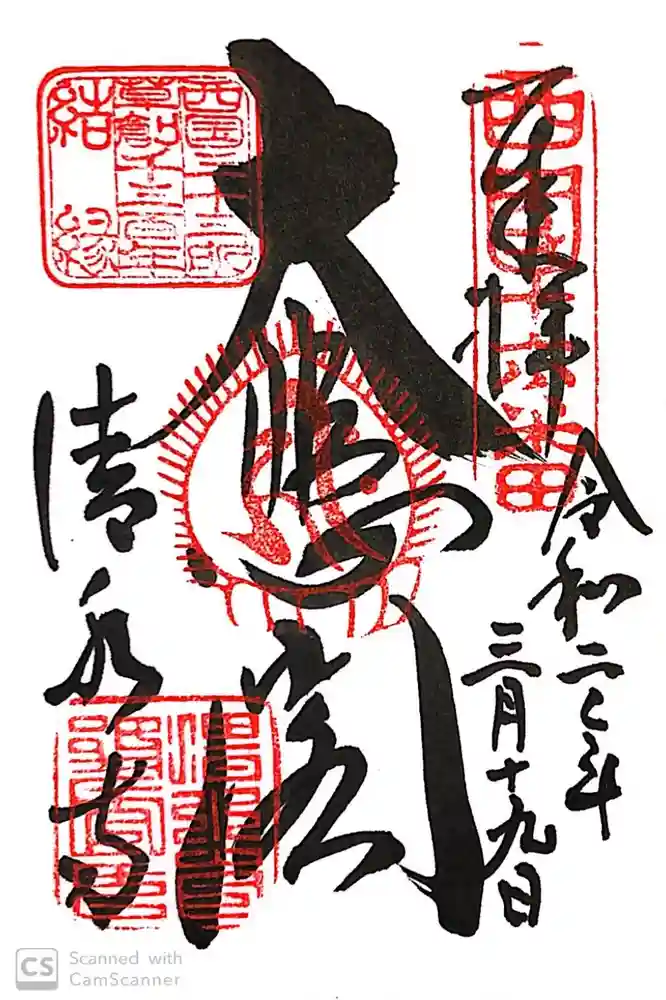 奉拝
西国十六番
令和二年
三月十九日
大悲閣
西国三十三所
草創千三百年
結縁
清水寺
Scanned with
CamScanner